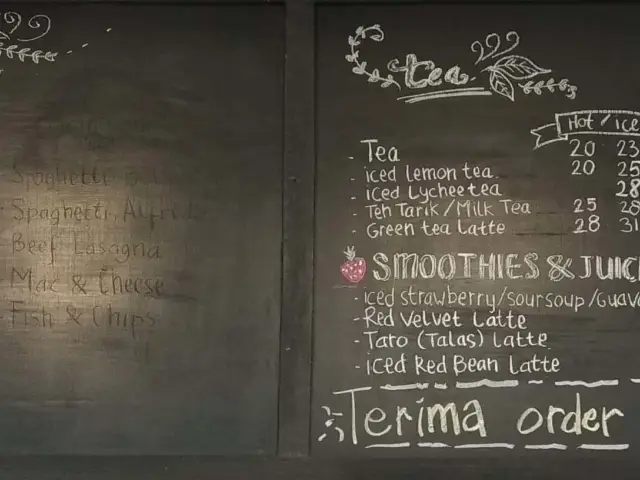 Spaghetti
Spaghetti, Alfredo
Beef Lasagna
Mac & Cheese
Fish & Chips
tea
Hot / ice
- Tea 20 23
- iced lemon tea 20 25
- iced Lychee tea 28
- Teh Tarik / Milk Tea 25 28
- Green tea Latte 28 31
SMOOTHIES & JUIC
- iced strawberry/soursoup/Guava
- Red Velvet Latte
- Taro (Talas) Latte
- iced Red Bean Latte
Terima order